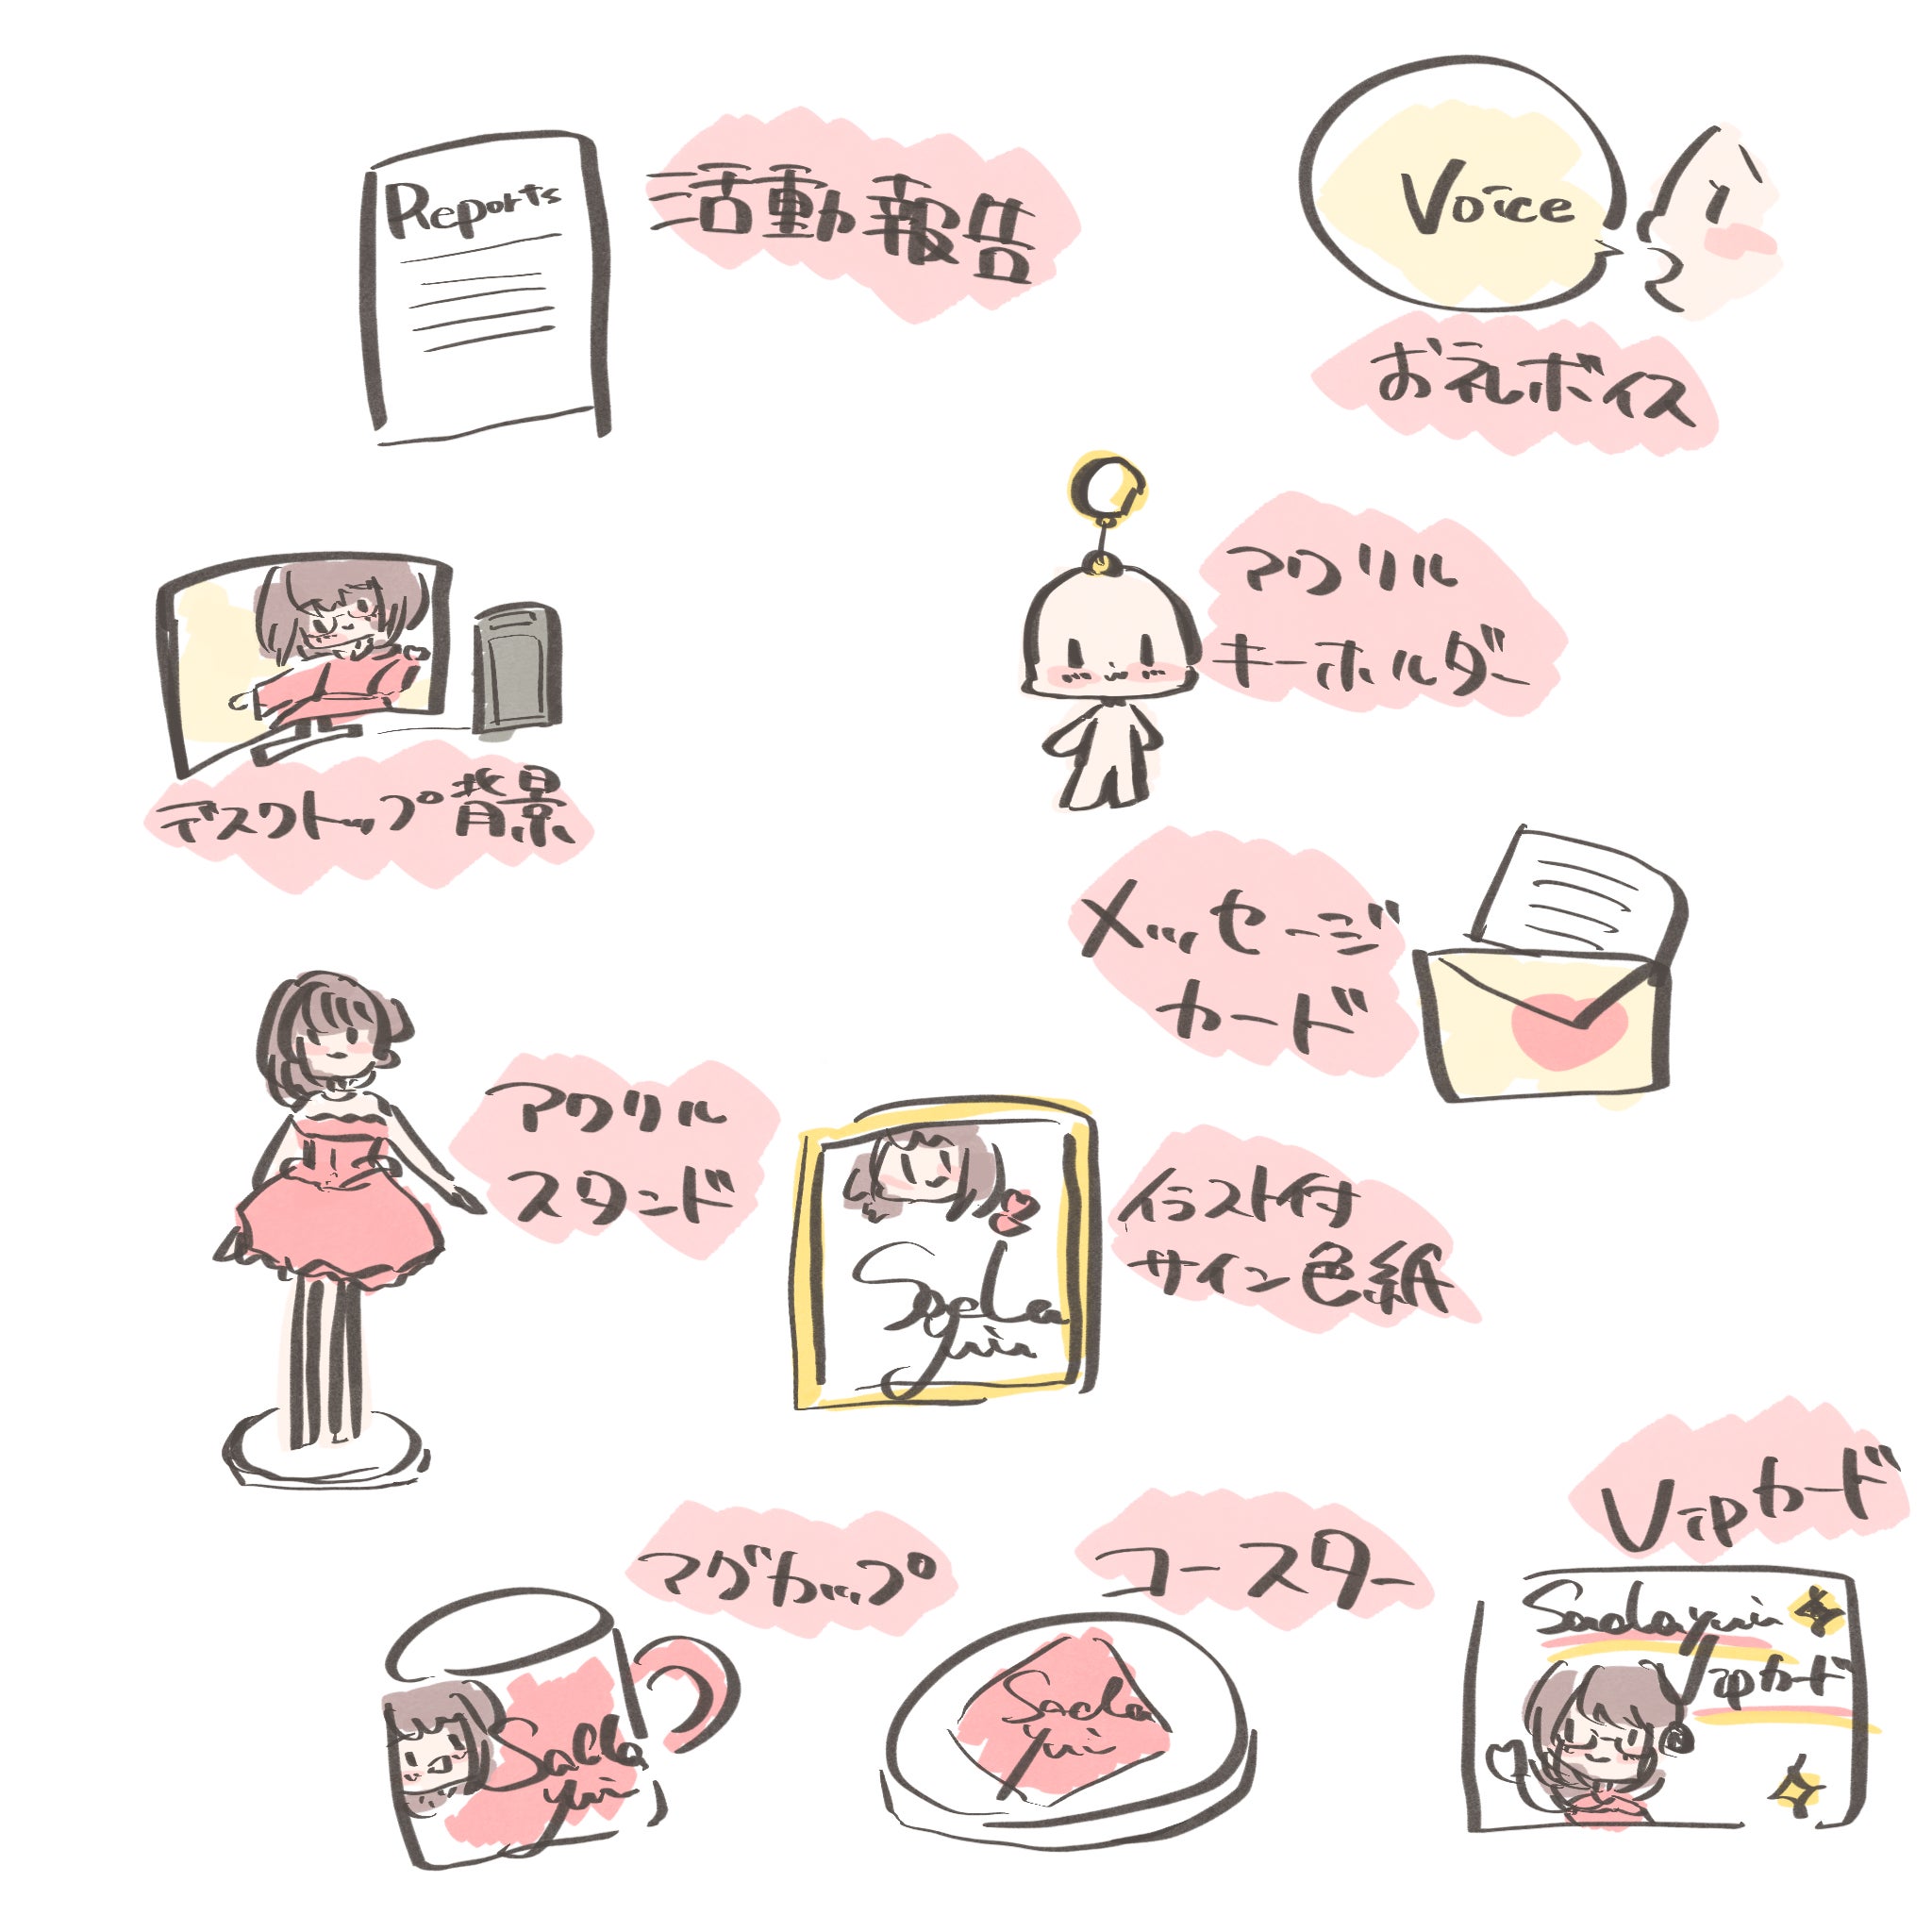 Reports
活動報告
Voice
お礼ボイス
アクリル
キーホルダー
デスクトップ背景
メッセージ
カード
アクリル
スタンド
Sada
yui
イラスト付
サイン色紙
Vipカード
Sadayui
Vipカード
マグカップ
Sada
yui
コースター
Sada
yui